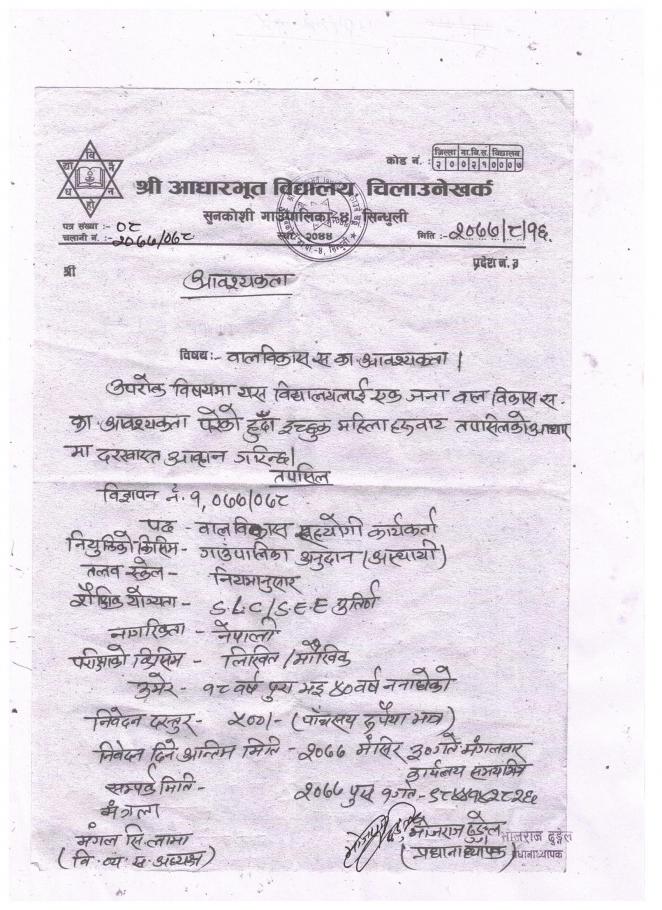 कोड नं. :
जिल्ला गा.बि.स. विद्यालय
२ ० ० २ १ ० ० ० ७
श्री आधारभूत विद्यालय चिलाउनेखर्क
सुनकोशी गाउँपालिका-४, सिन्धुली
पत्र संख्या :- ०८
स्था. २०४४
चलानी नं. :- २०७७/०७८
मिति :- २०७७/८/१६
प्रदेश नं. ३
श्री
आवश्यकता
विषय:- वालविकास स का आवश्यकता |
उपरोक्त विषयमा यस विद्यालयलाई एक जना वाल विकास स.
का आवश्यकता परेको हुँदा इच्छुक महिला हरुवाट तपसिलको आधार
मा दरखास्त आव्हान गरिन्छ।
तपसिल
विज्ञापन नं. १, ०७७/०७८
पद - वालविकास सहयोगी कार्यकर्ता
नियुक्तिको किसिम- गाउँपालिका अनुदान (अस्थायी)
तलव स्केल - नियमानुसार
शैक्षिक योग्यता - S.L.C/S.E.E
नागरिकता - नेपाली
परीक्षाको किसिम - लिखित/मौखिक
उमेर - १८ वर्ष पुरा भइ ४० वर्ष ननाघेको
निवेदन दस्तुर - ५००/- (पाँचसय रुपैया मात्र)
निवेदन दिने अन्तिम मिति - २०७७ मंसिर ३० गते मंगलवार
कार्यलय समयभित्र
सम्पर्क मिति- २०७७ पुस १ गते-
मंगला
मंगल सि. लामा
(वि. व्य. स. अध्यक्ष)
भोजराज दुङ्गेल
(प्रधानाध्यापक)
भोजराज दुङ्गेल
प्रधानाध्यापक